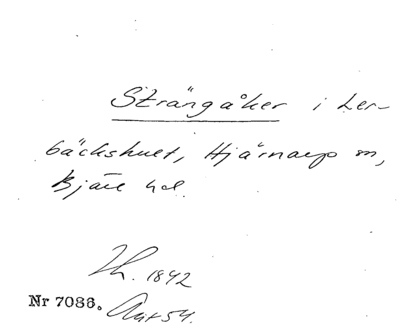 Strängåker i Ler-
bäckshult, Hjärnarp sn,
Bjäre hd.
Th. 1842
Nr 7086. Avt 54.